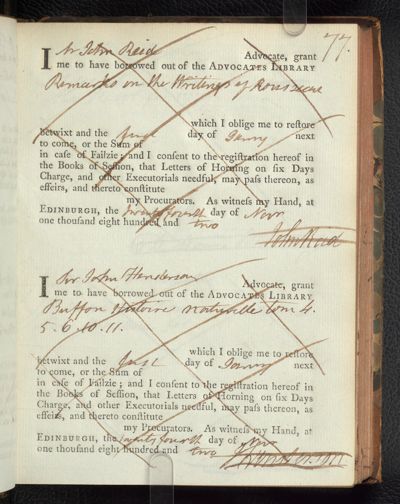 77.
I Mr John Reid Advocate, grant
me to have borrowed out of the ADVOCATES LIBRARY
Remarks on the Writings of Rousseau
which I oblige me to reſtore
betwixt and the first day of Janry next
to come, or the Sum of
in caſe of Failzie; and I conſent to the regiſtration hereof in
the Books of Seſſion, that Letters of Horning on ſix Days
Charge, and other Executorials needful, may paſs thereon, as
effeirs, and thereto conſtitute
my Procurators. As witneſs my Hand, at
EDINBURGH, the twenty fourth day of Novr
one thouſand eight hundred and two
John Reid
I Mr John Henderson Advocate, grant
me to have borrowed out of the ADVOCATES LIBRARY
Buffon Histoire naturelle tom 4.
5. 6. 10. 11.
which I oblige me to reſtore
betwixt and the first day of Janry next
to come, or the Sum of
in caſe of Failzie; and I conſent to the regiſtration hereof in
the Books of Seſſion, that Letters of Horning on ſix Days
Charge, and other Executorials needful, may paſs thereon, as
effeirs, and thereto conſtitute
my Procurators. As witneſs my Hand, at
EDINBURGH, the twenty fourth day of Novr
one thouſand eight hundred and two